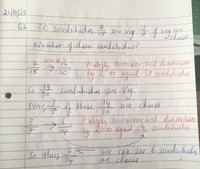 21/04/20
Q2. 30 sandwiches. 7/15 are veg. 3/7 of veg are cheese
Number of cheese sandwiches?
7/15 → 14/30 Multiply numerator and denominator
by 2 to equal 30 sandwiches
So 14/30 sandwiches are Veg.
Now, 3/7 of these 14/30 are cheese
3/7 → 6/14 Multiply numerator and denominator
by 2 to equal 14 sandwiches
So there 6/14 ← We can see 6 sandwiches
are cheese